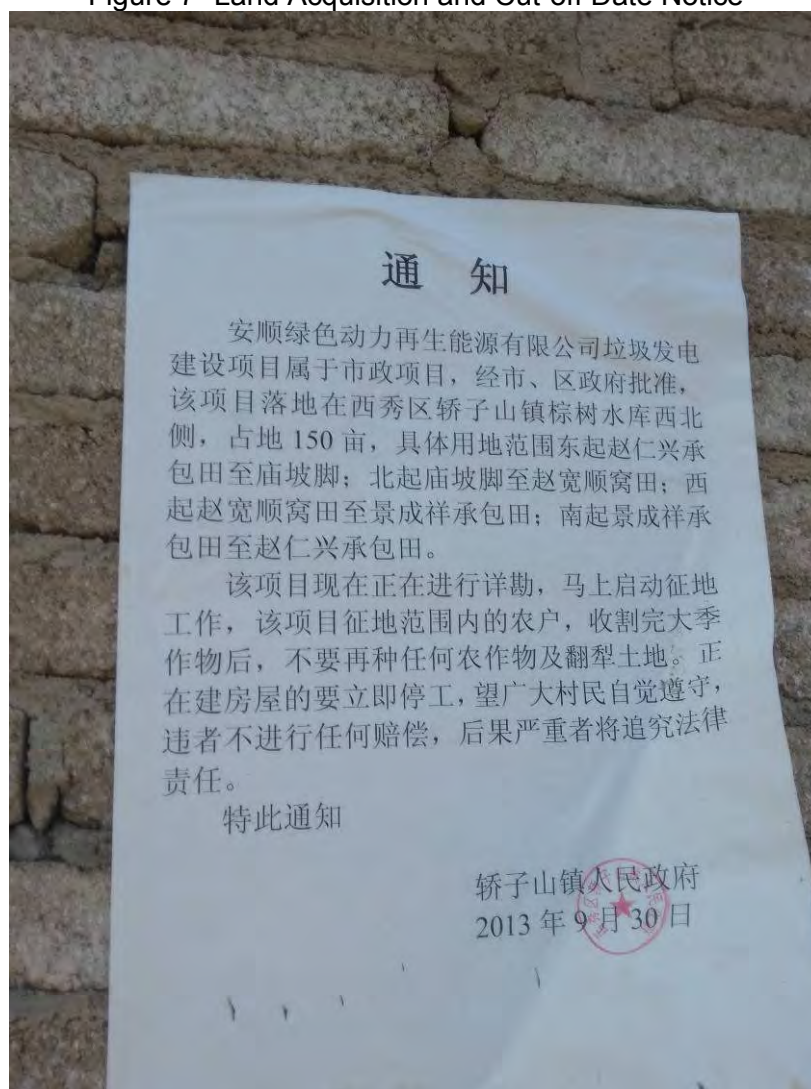 Figure 7 Land Acquisition and Cut-off Date Notice
通 知
安顺绿色动力再生能源有限公司垃圾发电
建设项目属于市政项目，经市、区政府批准，
该项目落地在西秀区轿子山镇棕树水库西北
侧，占地 150 亩，具体用地范围东起赵仁兴承
包田至庙坡脚；北起庙坡脚至赵宽顺窝田；西
起赵宽顺窝田至景成祥承包田；南起景成祥承
包田至赵仁兴承包田。
该项目现在正在进行详勘，马上启动征地
工作，该项目征地范围内的农户，收割完大季
作物后，不要再种任何农作物及翻犁土地。正
在建房屋的要立即停工，望广大村民自觉遵守，
违者不进行任何赔偿，后果严重者将追究法律
责任。
特此通知
轿子山镇人民政府
2013 年 9 月 30 日